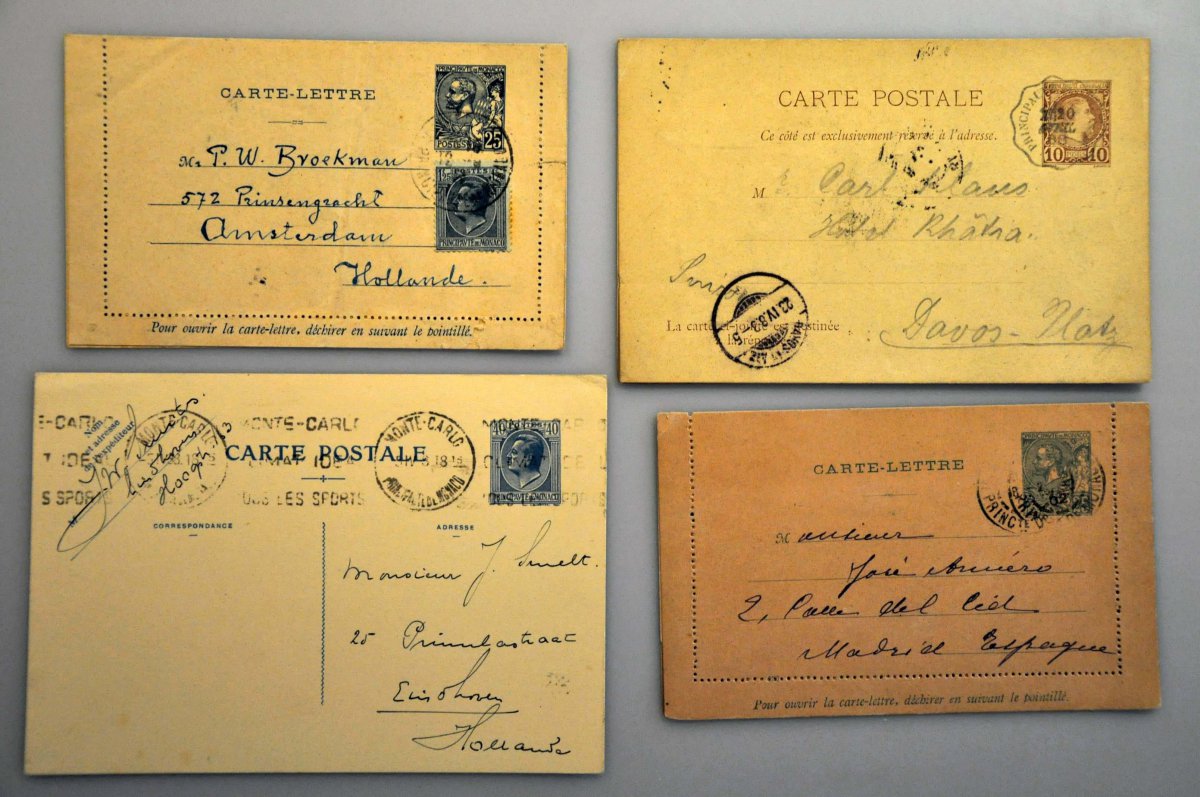 CARTE-LETTRE
PRINCIPAUTÉ DE MONACO
POSTES 25
Mr P. W. Broekman
572 Prinsengracht
Amsterdam
Hollande.
PRINCIPAUTÉ DE MONACO
Pour ouvrir la carte-lettre, déchirer en suivant le pointillé.
CARTE POSTALE
Ce côté est exclusivement réservé à l'adresse.
PRINCIPAU
10 10
M. Carl
Hotel
Davos-Platz
La carte ci-jointe est destinée
23.IV.
Nom
et adresse
de l'expéditeur
E-CARLO
MONTE-CARLO
MONTE-CARLO
MONTE-CARLO
CARTE POSTALE
40 40
PRINCIPAUTÉ DE MONACO
S SPOR
OUS LES SPORTS
CORRESPONDANCE
ADRESSE
Monsieur J. Smelt.
25
Eindhoven
Hollande
CARTE-LETTRE
Monsieur
José
2, Calle del Cid
Madrid Espagne
Pour ouvrir la carte-lettre, déchirer en suivant le pointillé.